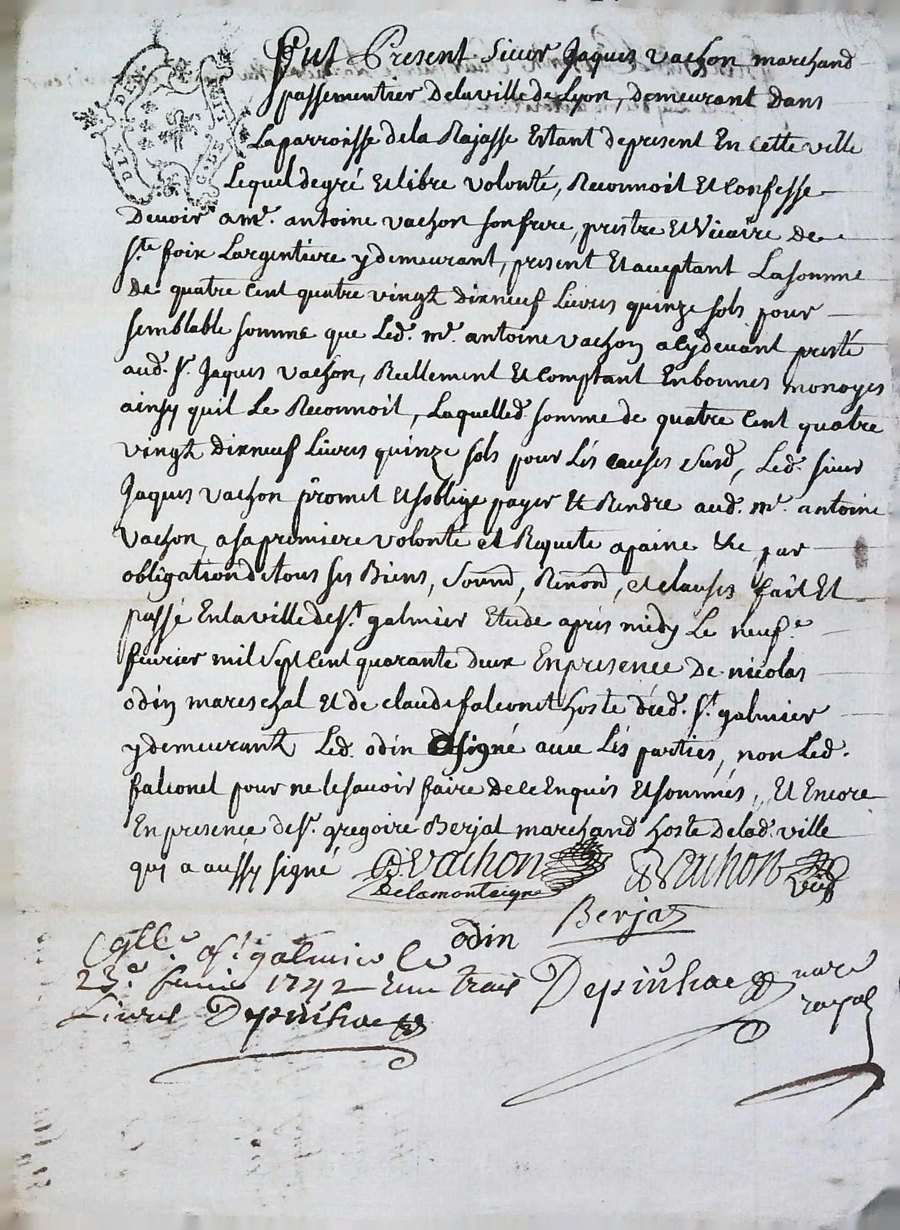 Fut Present Sieur Jaques Vachon marchand
passementier Delaville de Lyon, demeurant dans
Laparroisse dela Rajasse Estant depresent En cette ville
Lequel degré Et libre volonté, Reconnoit Et Confesse
Devoir a mr. antoine Vachon son frere, prestre Et Vicaire de
ste. foix Largentiere y demeurant, present Et acceptant La somme
De quatre Cent quatre vingt dix neuf Livres quinze sols pour
semblable somme que Led. mr. antoine vachon a cydevant presté
aud. sr. Jaques vachon, Reellement Et Comptant En bonnes monoyes
ainsy quil Le Reconnoit, Laquelled. somme de quatre Cent quatre
vingt dix neuf Livres quinze sols pour Les causes Susd, Led. sieur
Jaques vachon promet Et soblige payer Et Rendre aud. mr. antoine
Vachon, a sa premiere volonté et Requete a paine &c, par
obligation de tous ses Biens, Soumd, Renond, et clauses fait Et
passé En la ville de st. galmier Etude apres midy Le neufe.
fevrier mil sept cent quarante deux En presence De nicolas
odin mareschal Et de claude falconet hoste dud. st. galmier
y demeurant Led. odin a signé avec Les parties, non Led.
falconet pour ne le scavoir faire de ce Enquis Et sommés, Et Encore
En presence de sr. gregoire Berjat marchand hoste de lad. ville
qui a aussy signé Vachon Vachon
Delamonteigne
odin Berjat
st galmier le
23e. fevrier 1742 Reçu trois Depinhac notre
Livres Depinhac royal
DIX DEN.